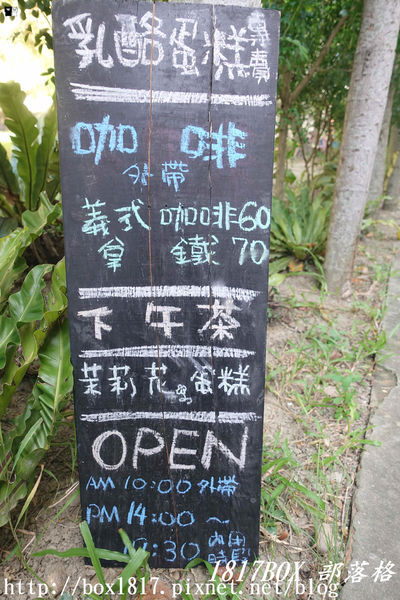 乳酪蛋糕專賣
咖啡
外帶
義式咖啡60
拿鐵70
下午茶
茉莉花蛋糕
OPEN
AM 10:00 外帶
PM 14:00～
19:30 內用時間
1817BOX 部落格
http://box1817.pixnet.net/blog